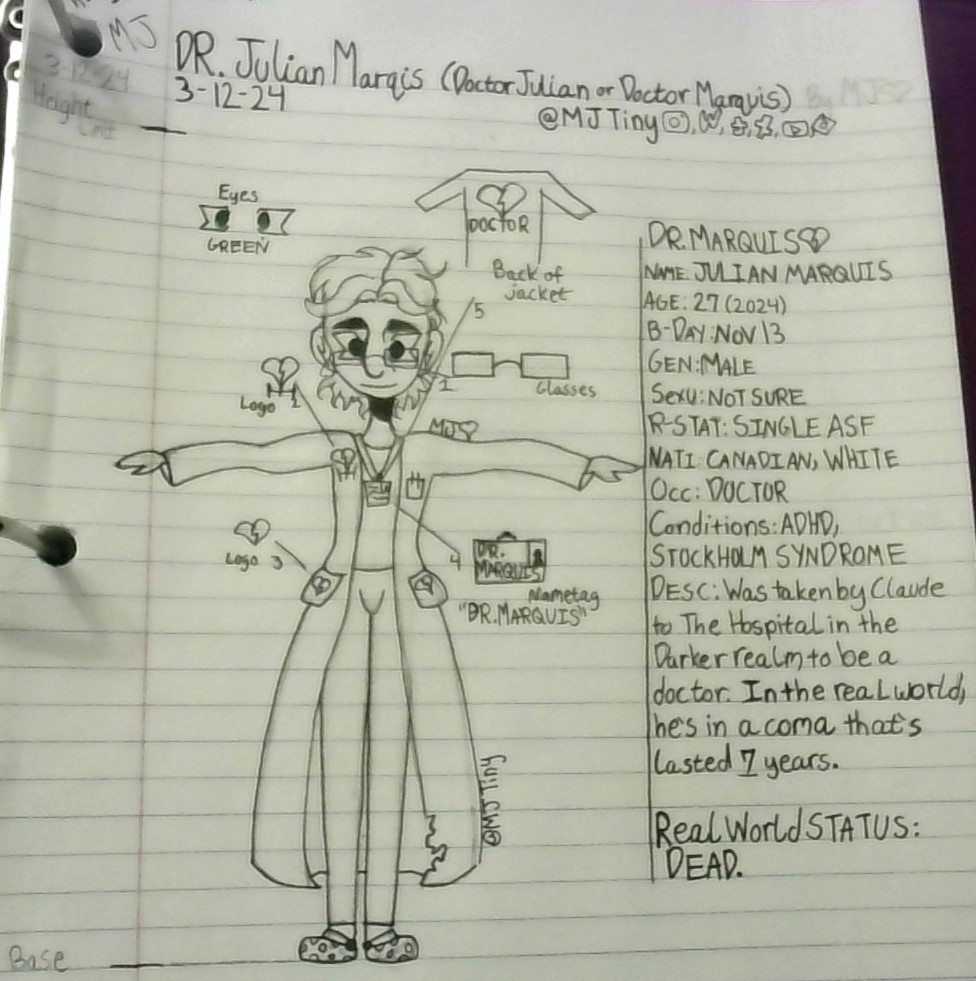 MJ
3-12-24
Height
Limit
DR. Julian Marqis (Doctor Julian or Doctor Marquis) By MJ
3-12-24
@MJTiny
Eyes
GREEN
DOCTOR
Back of
jacket
5
1
Glasses
Logo 2
MJS
Logo 3
4
DR.
MARQUIS
Nametag
"DR.MARQUIS"
@MJTiny
Base
DR.MARQUIS
NAME: JULIAN MARQUIS
AGE: 27 (2024)
B-DAY: NOV 13
GEN: MALE
SEXU: NOT SURE
R-STAT: SINGLE ASF
NATI. CANADIAN, WHITE
OCC: DOCTOR
Conditions: ADHD,
STOCKHOLM SYNDROME
DESC: Was taken by Claude
to The Hospital in the
Darker realm to be a
doctor. In the real world,
he's in a coma that's
lasted 7 years.
Real World STATUS:
DEAD.